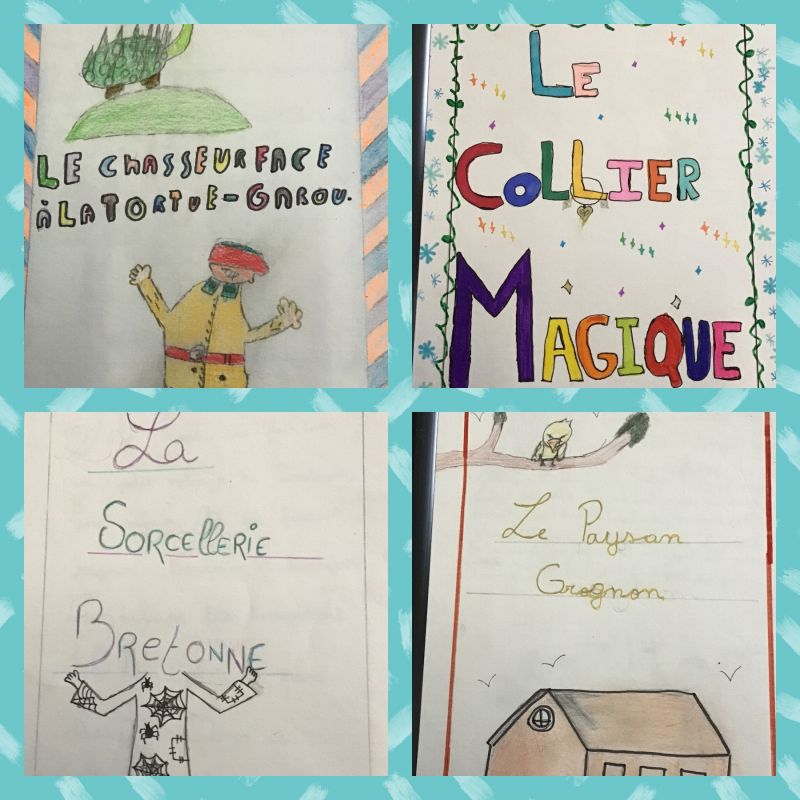 LE CHASSEUR FACE
À LA TORTUE-GAROU.
LE
COLLIER
MAGIQUE
La
SORCELLERIE
BRETONNE
Le Paysan
Grognon